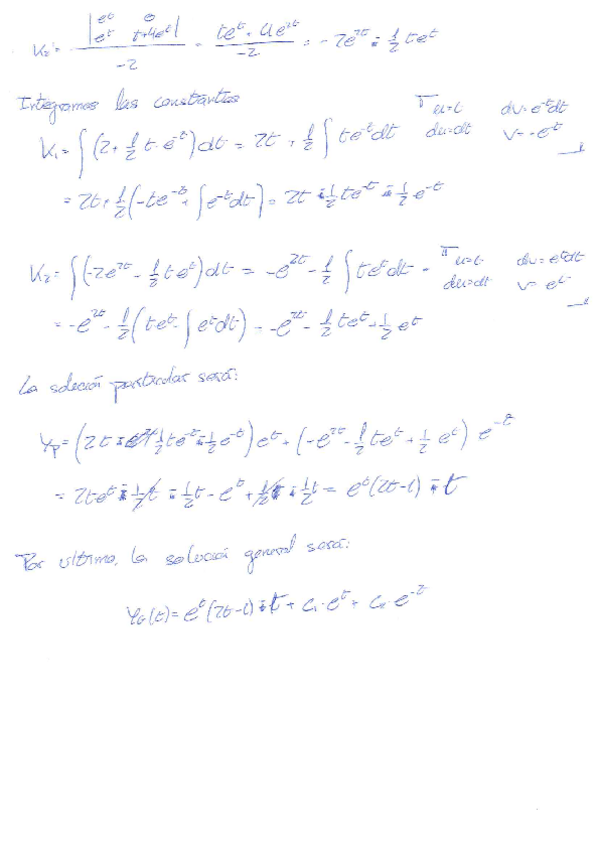 K₂' = |e^t 0; e^t t+4e^t| / -2 = te^t + 4e^{2t} / -2 = -2e^{2t} - 1/2 te^t
Integramos las constantes
K₁ = ∫(2 + 1/2 t·e^{-t})dt = 2t + 1/2 ∫ te^{-t}dt
u=t dv=e^{-t}dt
du=dt v=-e^{-t}
= 2t + 1/2(-te^{-t} + ∫e^{-t}dt) = 2t - 1/2 te^{-t} - 1/2 e^{-t}
K₂ = ∫(-2e^{2t} - 1/2 te^t)dt = -e^{2t} - 1/2 ∫ te^t dt =
u=t dv=e^t dt
du=dt v=e^t
= -e^{2t} - 1/2(te^t - ∫e^t dt) = -e^{2t} - 1/2 te^t + 1/2 e^t
La solución particular será:
Yp = (2t - 1/2 te^{-t} - 1/2 e^{-t})e^t + (-e^{2t} - 1/2 te^t + 1/2 e^t) e^{-t}
= 2te^t - 1/2 t - 1/2 t - e^t = e^t(2t-1) - t
Por ultimo, la solución general será:
Y_G(t) = e^t(2t-1) - t + C₁·e^t + C₂·e^{-t}